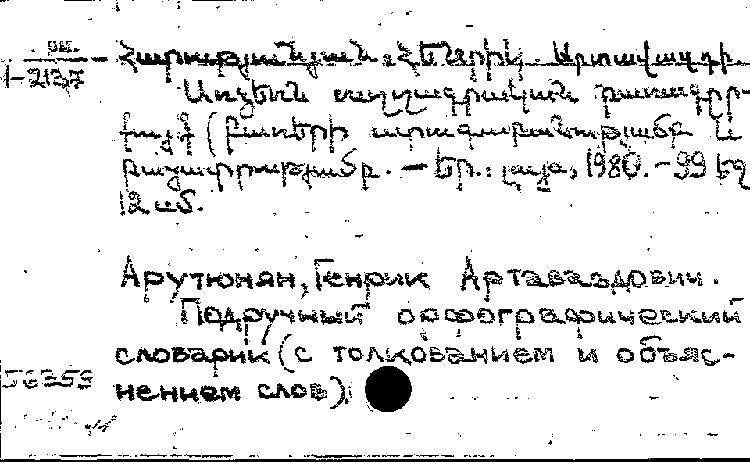 բա.
1-2137
Հարությունյան, Հենրիկ Արտավազդի.
Առձեռն ուղղագրական բառագրր-
քույկ (բառերի արտասանությամբ և
բացատրությամբ. — Եր.: Լույս, 1980. - 99 էջ
12 սմ.
Арутюнян, Генрик Артаваздович.
Подручный орфографический
словарик (с толкованием и объяс-
нением слов).
56353